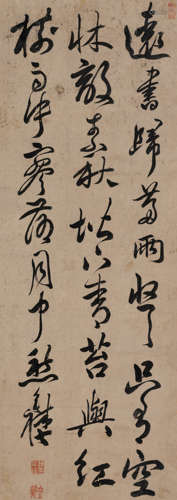 遠書歸夢兩悠悠只有空
牀敵素秋堦下青苔與紅
樹雨中寥落月中愁